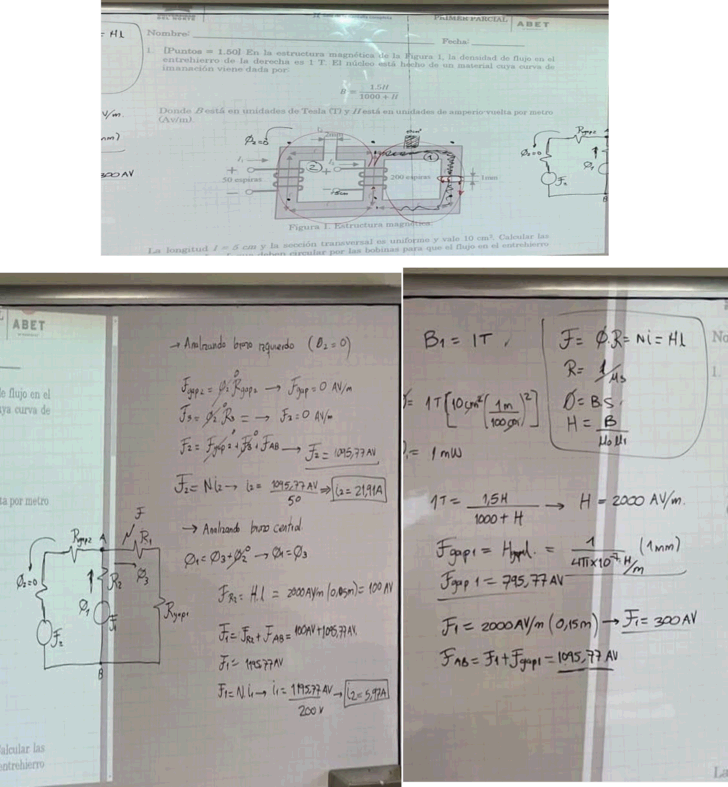 PRIMER PARCIAL
ABET
Nombre:
Fecha:
1. [Puntos = 1.50] En la estructura magnética de la Figura 1, la densidad de flujo en el
entrehierro de la derecha es 1 T. El núcleo está hecho de un material cuya curva de
imanación viene dada por:
B = 1.5H / 1000 + H
Donde B está en unidades de Tesla (T) y H está en unidades de amperio-vuelta por metro
(Av/m).
= Hl
300 AV
Φ2=0
2
1
50 espiras
200 espiras
1mm
Figura 1. Estructura magnética
La longitud l = 5 cm y la sección transversal es uniforme y vale 10 cm². Calcular las
deben circular por las bobinas para que el flujo en el entrehierro
Rgap2
Φ2=0
F2
B
ABET
de flujo en el
cuya curva de
ta por metro
alcular las
entrehierro
→ Analizando brazo izquierdo (B2=0)
Fgap2 = Φ2 Rgap2 → Fgap = 0 AV/m
F3 = Φ2 R3 = → F3 = 0 AV/m
F2 = Fgap2 + F3 + FAB → F2 = 1095,77 AV
F2 = N i2 → i2 = 1095,77 AV / 50 ⇒ i2 = 21,91A
→ Analizando brazo central
Φ1 = Φ3 + Φ2 → Φ1 = Φ3
FR2 = H.l = 2000 AV/m (0,05m) = 100 AV
F1 = FR2 + FAB = 100AV + 1095,77AV
F1 = 1195,77 AV
F1 = N i1 → i1 = 1195,77 AV / 200 v → i2 = 5,97A
F
Rgap2
A
R1
Φ2=0
R2
Φ3
Φ1
F1
Rgap1
F2
B
B1 = 1T
F = Φ.R = Ni = Hl
R = l / μs
Φ = B S
H = B / μ0 μ1
= 1T [10 cm² (1m / 100cm)²]
= 1 mW
1T = 1,5H / 1000 + H → H = 2000 AV/m.
Fgap1 = Hgap l = 1 / 4π×10⁻⁷ H/m (1mm)
Fgap1 = 795,77 AV
F1 = 2000 AV/m (0,15m) → F1 = 300 AV
FAB = F1 + Fgap1 = 1095,77 AV
No
1.
La